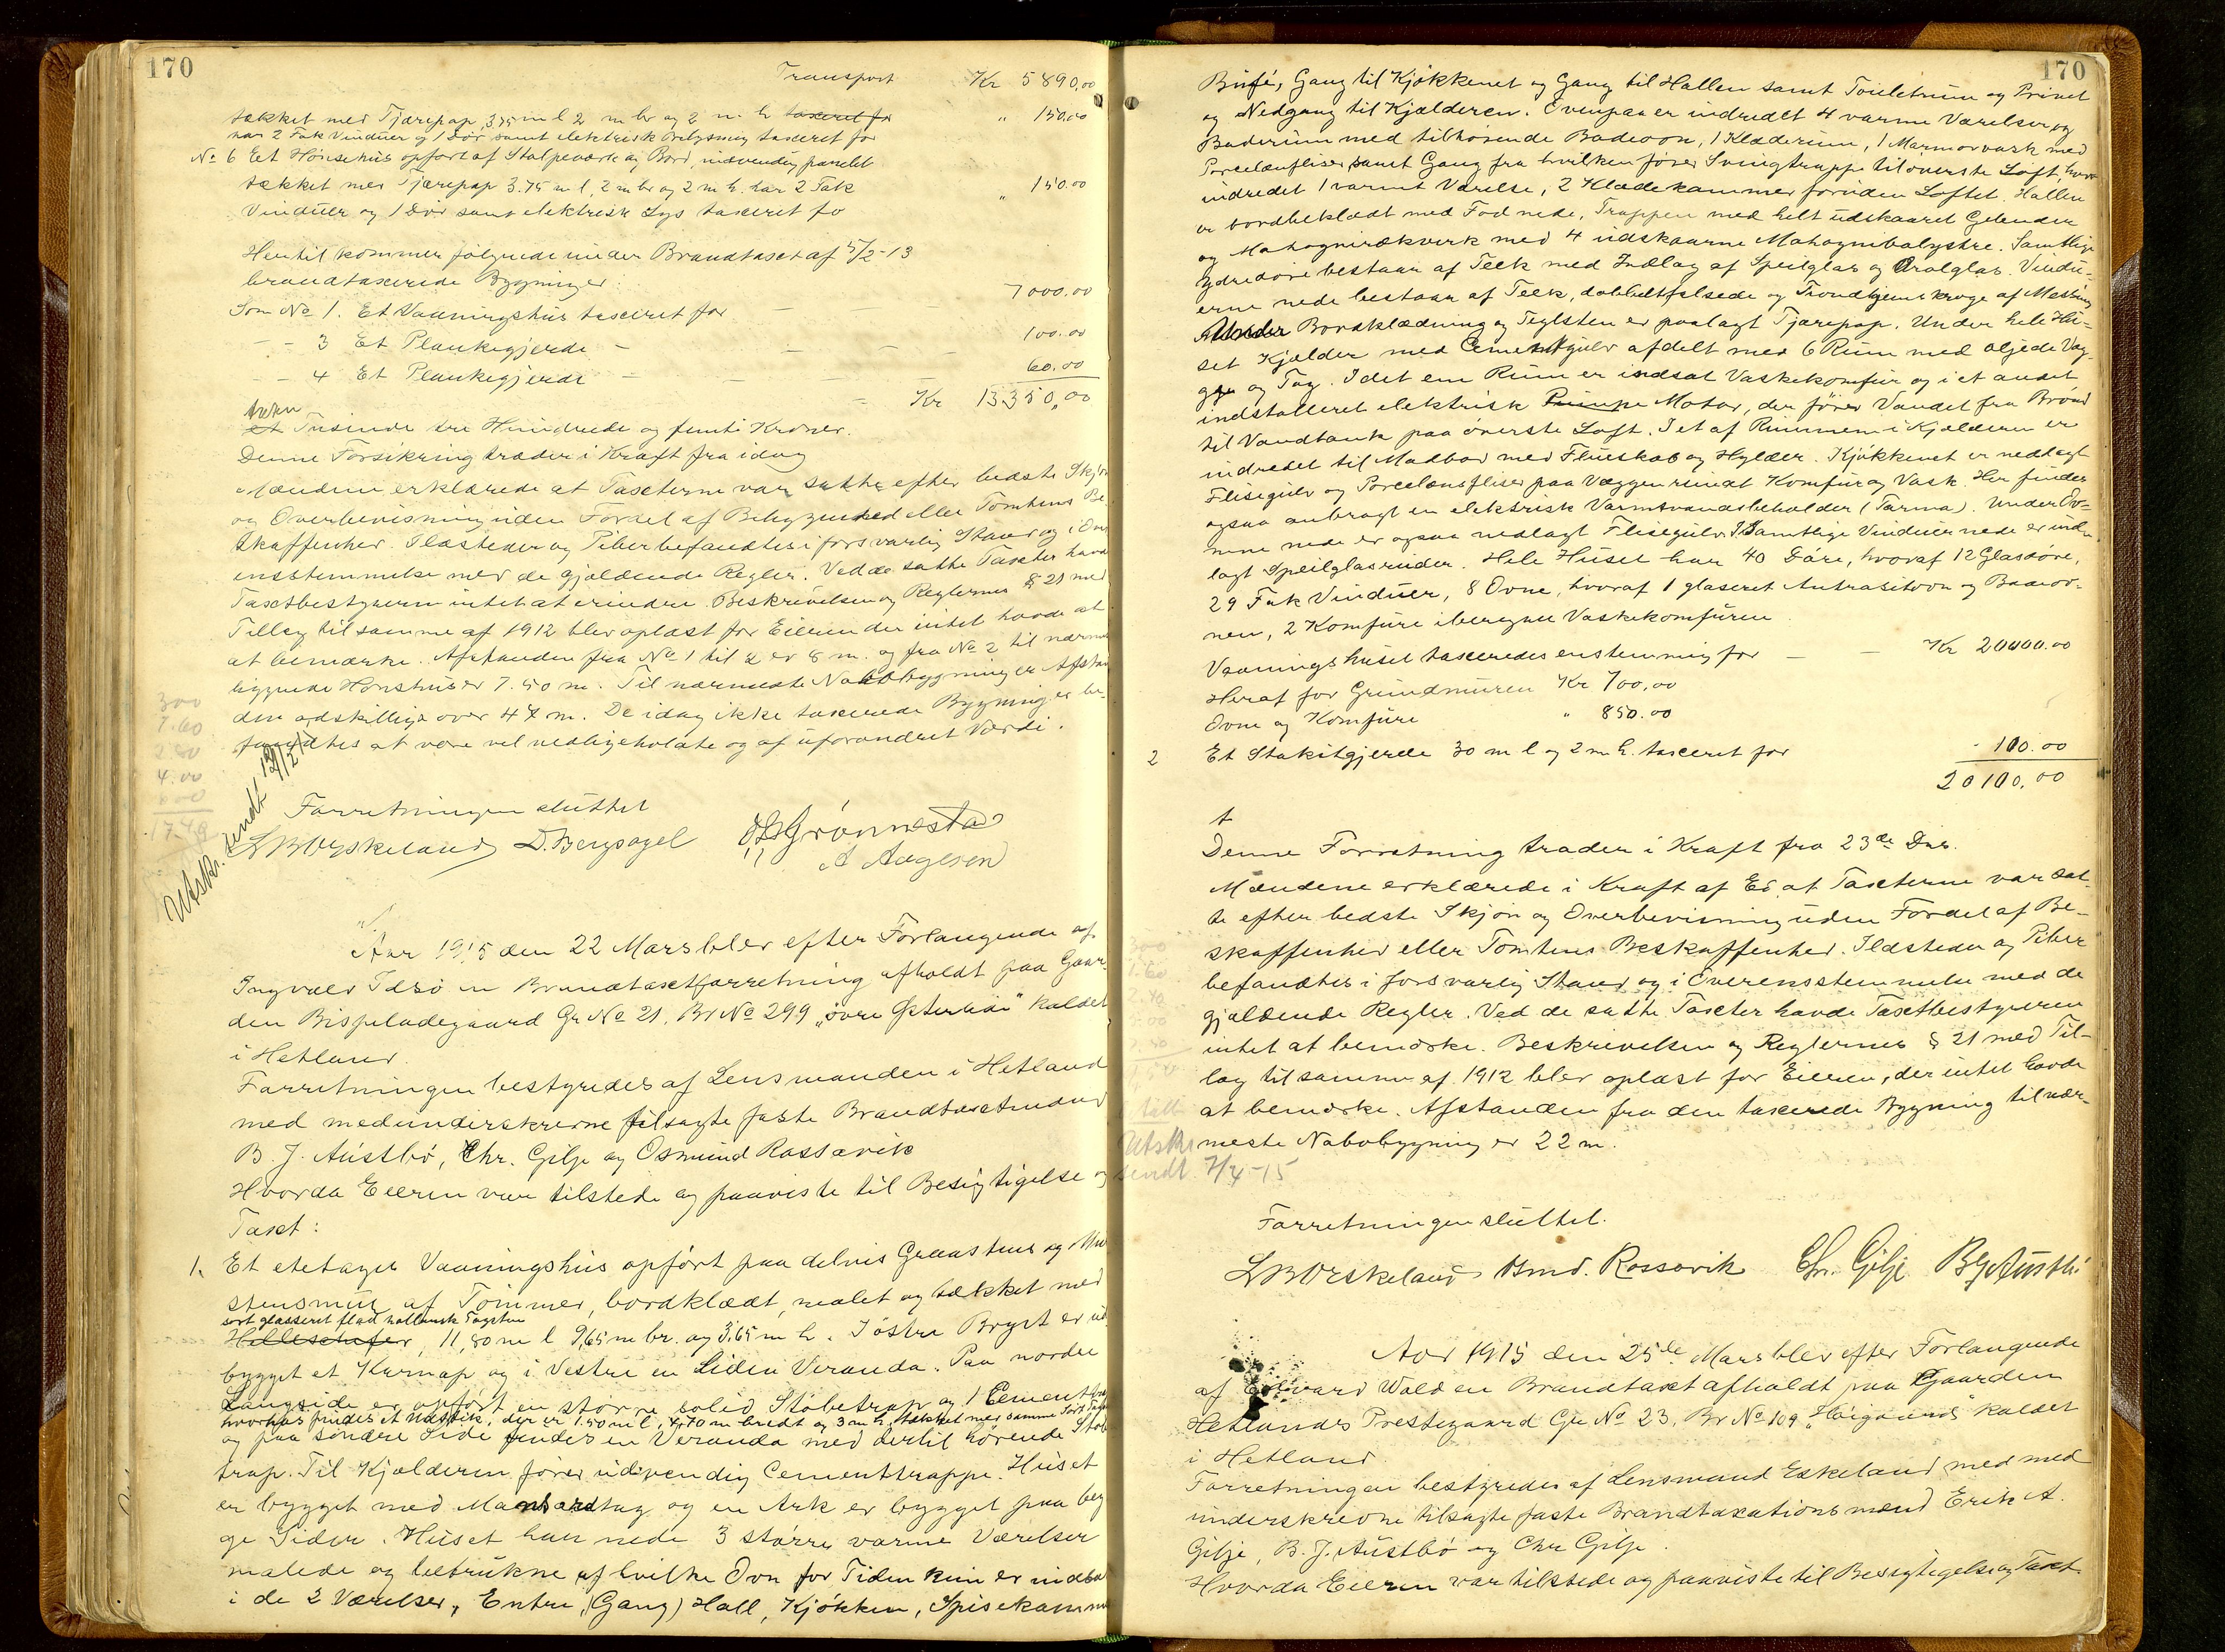 170
Transport Kr 5890,00
tækket med Tjærepap, 3,75 m l 2 m br og 2 m. h taxeret fo " 150,00
har 2 Fak Vinduer og 1 Dør samt elektrisk Belysning taxeret for
No 6 Eet Hønsehus opført af Stolpeværk og Bord, indvendig panelet
tækket med Tjærepap 3.75 m l, 2 m br og 2 m h. har 2 Fak
Vinduer og 1 Dør samt elektrisk Lys taxeret fo " 150.00
Hertil kommer følgende under Brandtaxt af 5/2-13
brandtaxerede Bygninger:
Som No 1. Et Vaaningshus taxeret for 7000.00
- - 3 Et Plankegjerde - 100.00
- - 4 Et Plankegjerde - 60.00
Kr 13350,00
tretten
Tusinde tre Hundrede og femti Kroner.
Denne Forsikring træder i Kraft fra idag
Mændene erklærede at Taxterne var satte efter bedste Skjøn
og Overbevisning uden Fordel af Beliggenhed eller Tomtens Be-
skaffenhed. Ildsteder og Piber befandtes i forsvarlig Stand og i Over
ensstemmelse med de gjældende Regler. Ved de satte Taxter havde
Taxtbestyreren intet at erindre. Beskrivelsen og Reglernes § 21 med
Tillæg til samme af 1912 blev oplæst for Eieren der intet havde at
at bemærke. Afstanden fra No 1 til 2 er 8 m. og fra No 2 til nærmest
liggende Hønshus er 7.50 m. Til nærmeste Nabobygning er Afstan
den adskillige over 47 m. De idag ikke taxerede Bygning er be-
fandtes at være vel vedligeholdte og af uforandret Værdi.
300
7.60
2.50
4.00
17.40
Utsk. sendt
Forretningen sluttet
L B Orskeland D. Bergsagel Grønnestad
A Aagesen
Aar 1915 den 22 Mars blev efter Forlangende af
Ingvald Idsø en Brandtaxtforretning afholdt paa Gaar-
den Bispeladegaard Gr No 21, Br No 299 „øvre Østerlide" kaldet
i Hetland.
Forretningen bestyredes af Lensmanden i Hetland
med medunderskrevne tilsagte faste Brandtaxtmænd
B. J. Austbø, Chr. Gilje og Osmund Rossavik
Hvorda Eieren var tilstede og paaviste til Besigtigelse og
Taxt:
1. Et etetages Vaaningshus opført paa delvis Graastens og Mur
stensmur af Tømmer, bordklædt, malet og tækket med
sort glasseret flad hollansk Tagsten
Helleskifer, 11,80 m l 9,65 m br. og 3,65 m h. I østre Bryst er ud
bygget et Karnap og i Vestre en Liden Veranda. Paa nordre
Langside er opført en større solid Støbetrap og 1 Cementtrap
hvorhos findes et Udstik, der er 1.50 m l, 4,70 m bredt og 3 m h. tækket med samme Sort Tagst
og paa søndre Side findes en Veranda med dertil hørende Støbe
trap. Til Kjælderen fører udvendig Cementtrappe. Huset
er bygget med Mansardtag og en Ark er bygget paa beg
ge Sider. Huset har nede 3 større varme Værelser
malede og betrukne af hvilke Ovn for Tiden kun er indsat
i de 2 Værelser, Entre, (Gang) Hall, Kjøkken, Spisekammer
170
Bufé, Gang til Kjøkkenet og Gang til Hallen samt Toiletrum og Privet
og Nedgang til Kjælderen. Ovenpaa er indredet 4 varme Værelser og
Baderum med tilhørende Badeovn, 1 Klæderum, 1 Marmorvask med
Porcelænfliser, samt Gang fra hvilken fører Svingtrappe til øverste Loft, hvor
indredet 1 varmt Værelse, 2 Klædekammer foruden Loftet. Hallen
er bordbeklædt med Fod nede, Trappen med helt udskaaret Gelender
og Mahognirækverk med 4 udskaarne Mahognibalystre. Samtlige
ydredøre bestaar af Teek med Indlag af Speilglas og Oralglas. Vindu-
erne nede bestaar af Teek, dobbeltfalsede og Trondhjems kroge af Messing
Under Bordklædning og Teglsten er paalagt Tjærepap. Under hele Hu-
set Kjelder med Cementgulv afdelt med 6 Rum med oljede Væg-
ge og Tag. I det ene Rum er indsat Vaskekomfur og i et andet
indstalleret elektrisk Pumpe Motor, der fører Vandet fra Brønd
til Vandtank paa øverste Loft. I et af Rummene i Kjælderen er
indredet til Madbod med Flueskab og Hylder. Kjøkkenet er nedlagt
Flisegulv og Porcelænsfliser paa Væggen rundt Komfur og Vask. Her findes
ogsaa anbragt en elektrisk Varmtvandsbeholder (Tarma). Under Ov-
nene nede er ogsaa nedlagt Flisegulv. I Samtlige Vinduer nede er ind-
lagt Speilglasruder. Hele Huset har 40 Døre, hvoraf 12 Glasdøre,
29 Fak Vinduer, 8 Ovne, hvoraf 1 glaseret Antrasitovn og Badeov-
nen, 2 Komfure iberegnet Vaskekomfuren.
Vaaningshuset taxeredes enstemmig for - - Kr 20000.00
Heraf for Grundmuren Kr 700,00
Ovne og Komfure " 850.00
2 Et Stakitgjerde 30 m l og 2 m h. taxeret for - 100.00
20100,00
Denne Forretning træder i Kraft fra 23de Dns.
Mændene erklærede i Kraft af Ed at Taxterne var sat-
te efter bedste Skjøn og Overbevisning uden Fordel af Be-
skaffenhed eller Tomtens Beskaffenhed. Ildsteder og Piber
befandtes i forsvarlig Stand og i Overensstemmelse med de
gjældende Regler. Ved de satte Taxter havde Taxtbestyreren
intet at bemærke. Beskrivelsen og Reglernes § 21 med Til-
læg til samme af 1912 blev oplæst for Eieren, der intet havde
at bemærke. Afstanden fra den taxerede Bygning til nær-
meste Nabobygning er 22 m.
Utsk.
sendt 7/4-15
Forretningen sluttet.
L B Orskeland Osmd. Rossavik Chr. Gilje B J Austbø
Aar 1915 den 25de Mars blev efter Forlangende
af Edvard Wold en Brandtaxt afholdt paa Gaarden
Hetlands Prestegaard Gr No 23, Br No 109 „Høigaard" kaldet
i Hetland.
Forretningen bestyredes af Lensmand Eskeland med med
underskrevne tilsagte faste Brandtaxationsmænd Erik A.
Gilje, B. J. Austbø og Chr Gilje.
Hvorda Eieren var tilstede og paaviste til Besigtigelse og Taxt